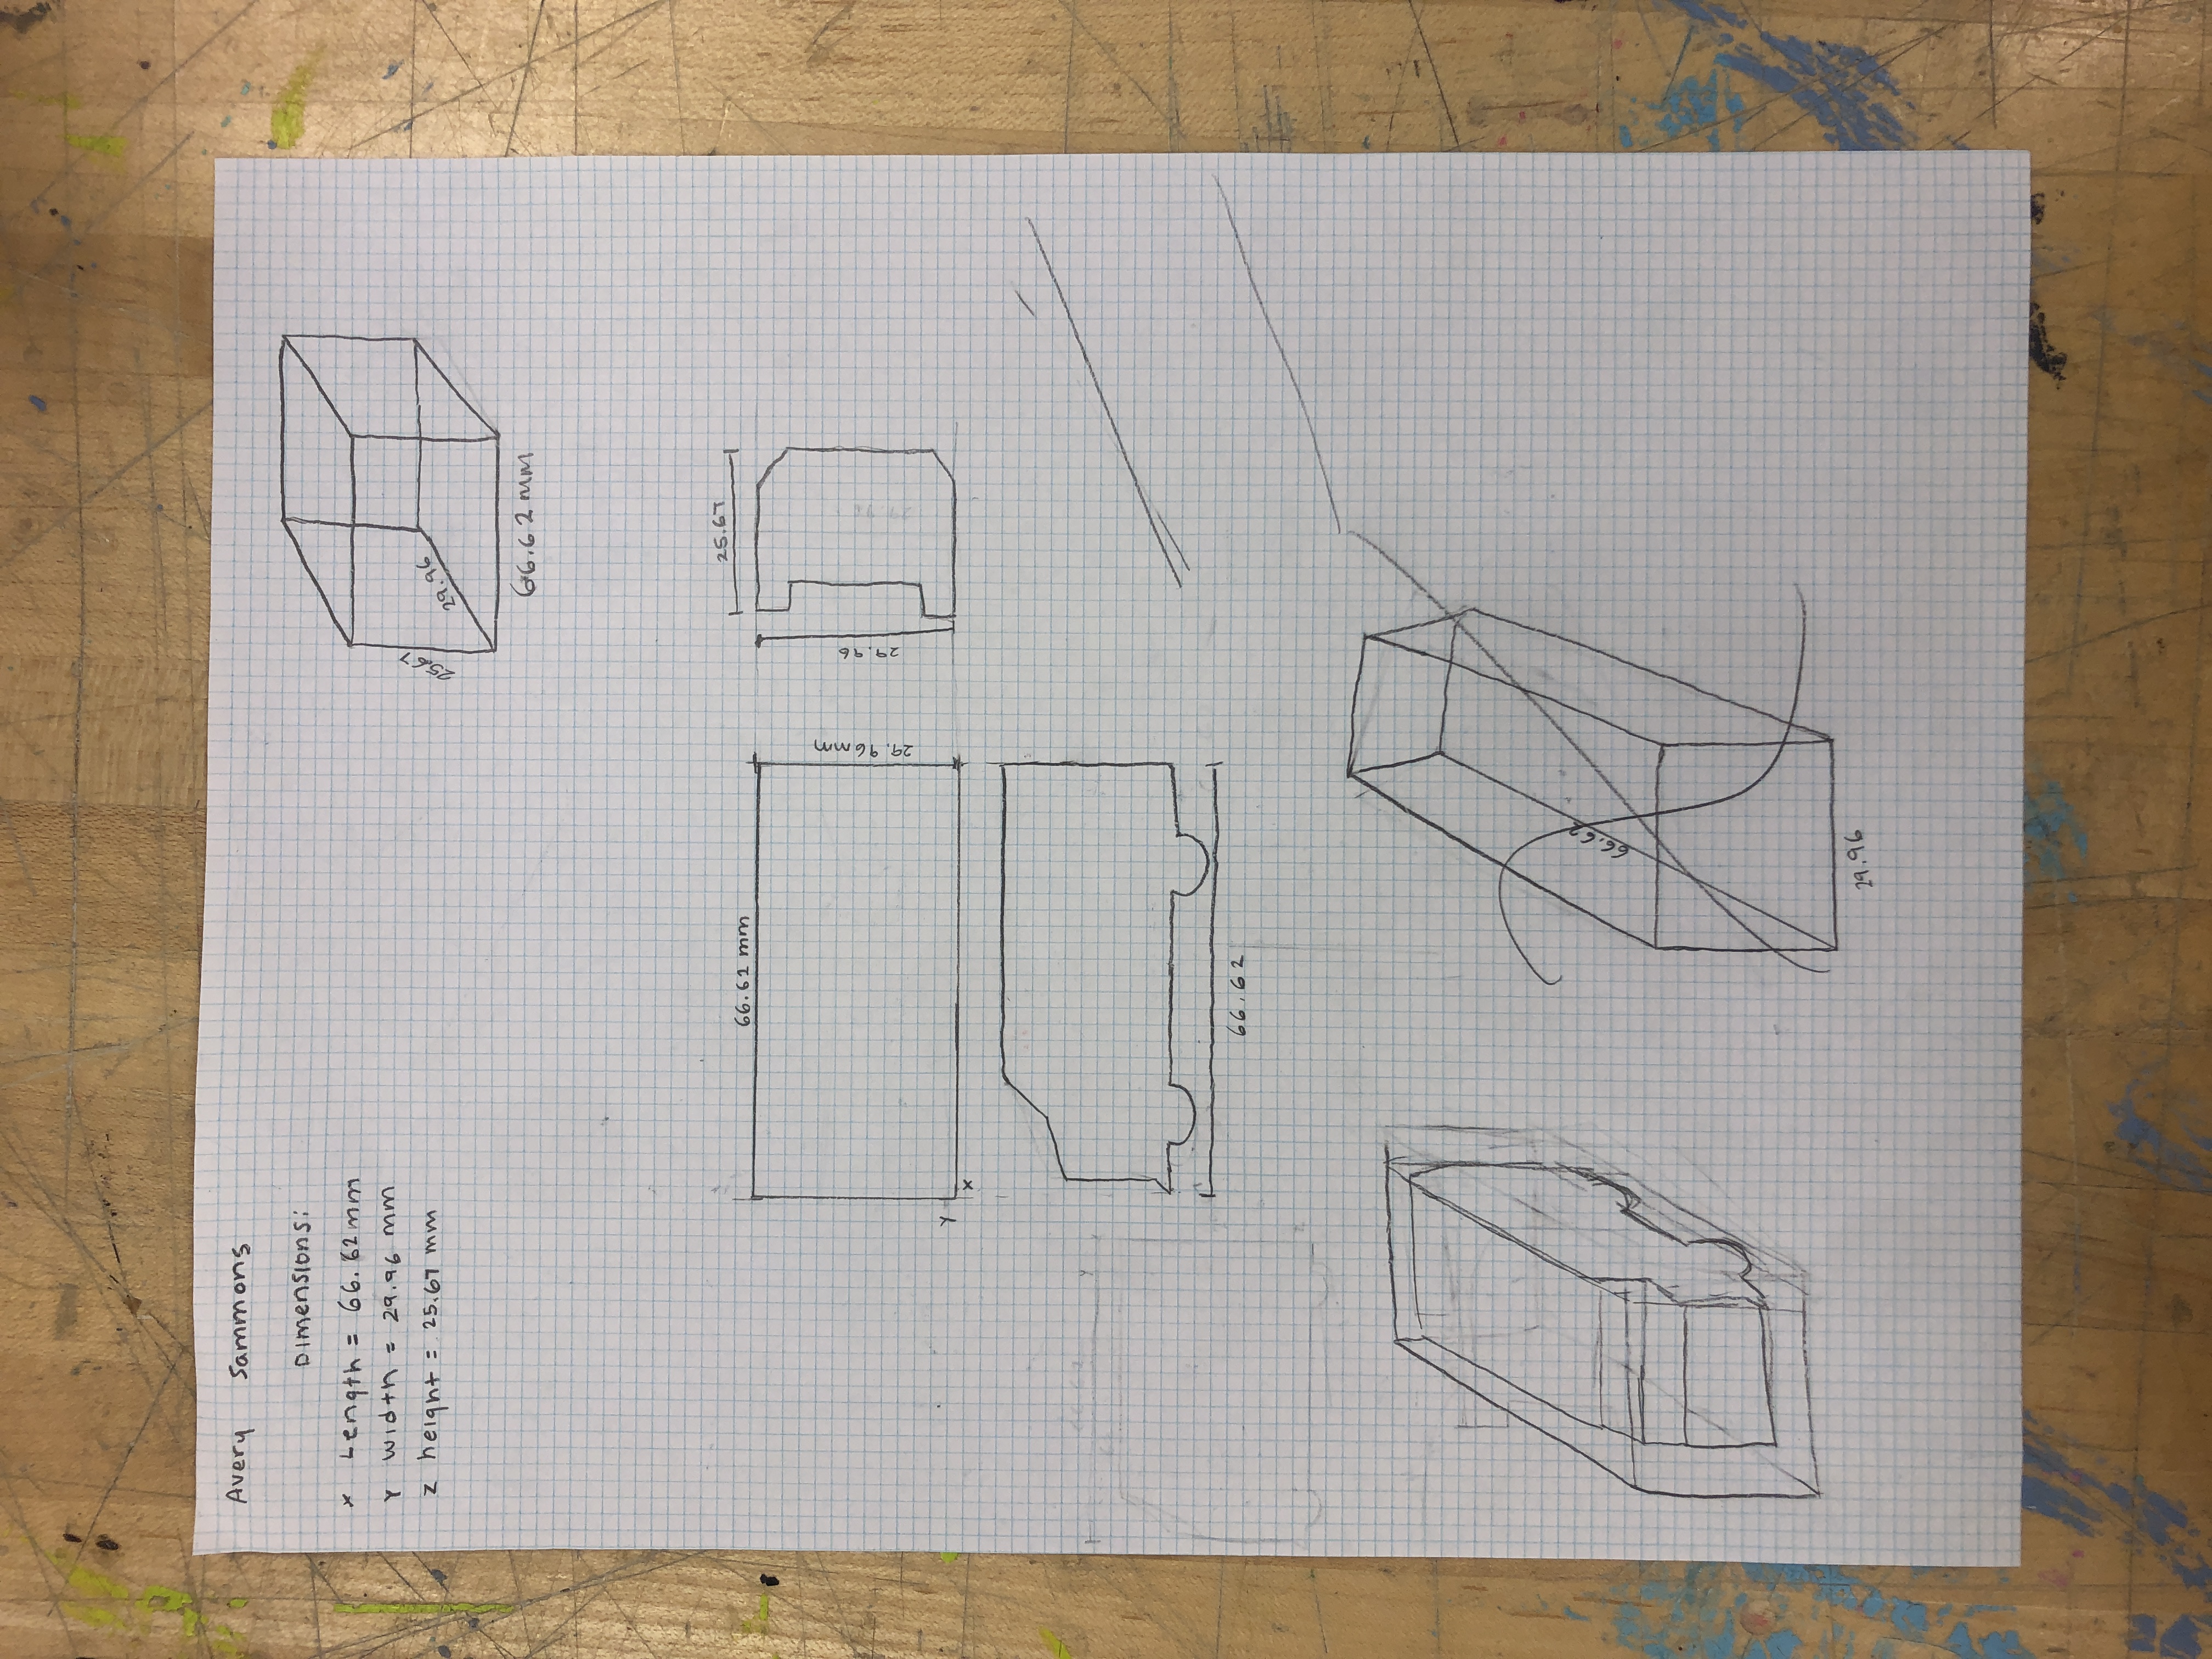 Avery Sammons
Dimensions:
X Length = 66.62 mm
Y width = 29.96 mm
Z height = 25.67 mm
25.67
29.96
66.62 mm
25.67
66.62 mm
29.96 mm
29.96
Y
X
66.62
66.62
29.96